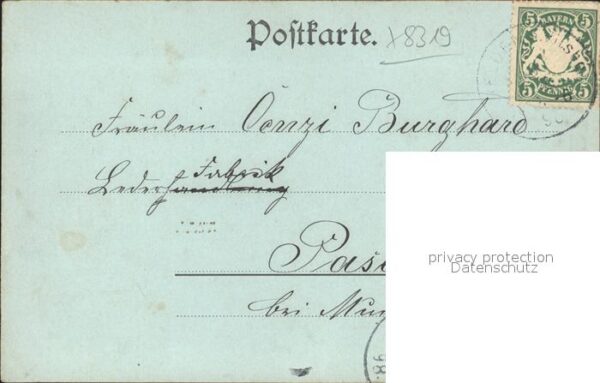 Postkarte. x8319
5 BAYERN 5
5 PFENNIG 5
Fräulein Cenzi Burghard
Fabrik
Lederhandlung
privacy protection
Datenschutz
Pas
bei Mün
98